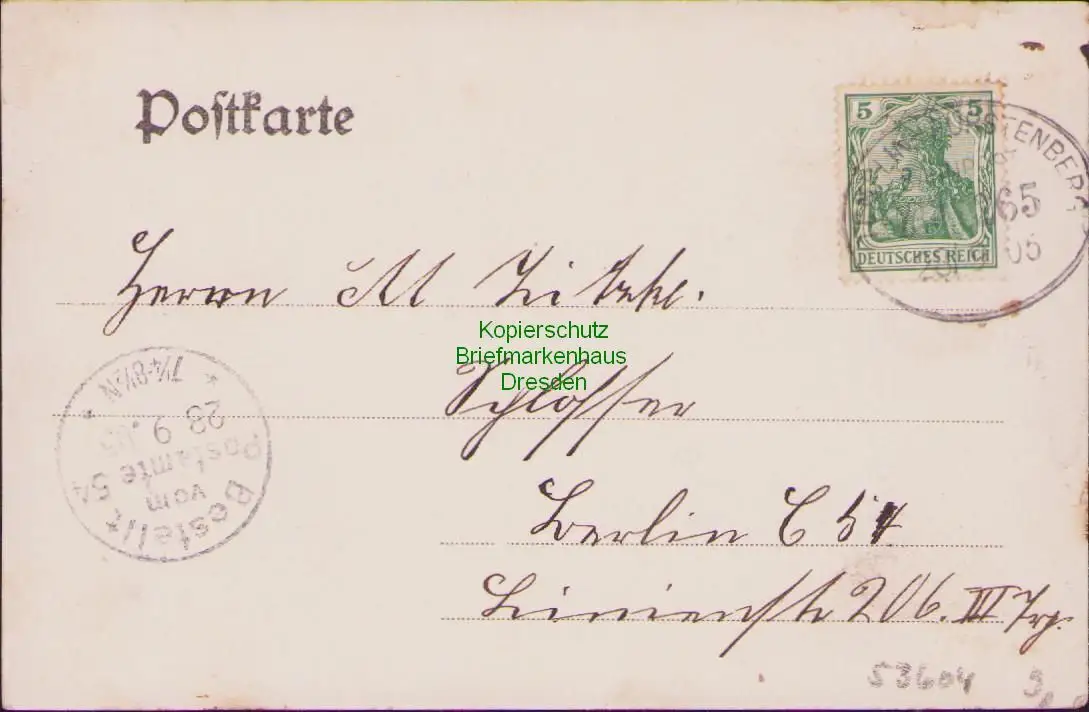 Postkarte
5 5
DEUTSCHES REICH
FÜRSTENBERG
65
05
Herrn M Zitzke.
Kopierschutz
Briefmarkenhaus
Dresden
Schlosser
Berlin C 54
Linienstr 206. III Trp.
Bestellt
vom
Postamte 54
28 9. 05
7¼-8½N
53604